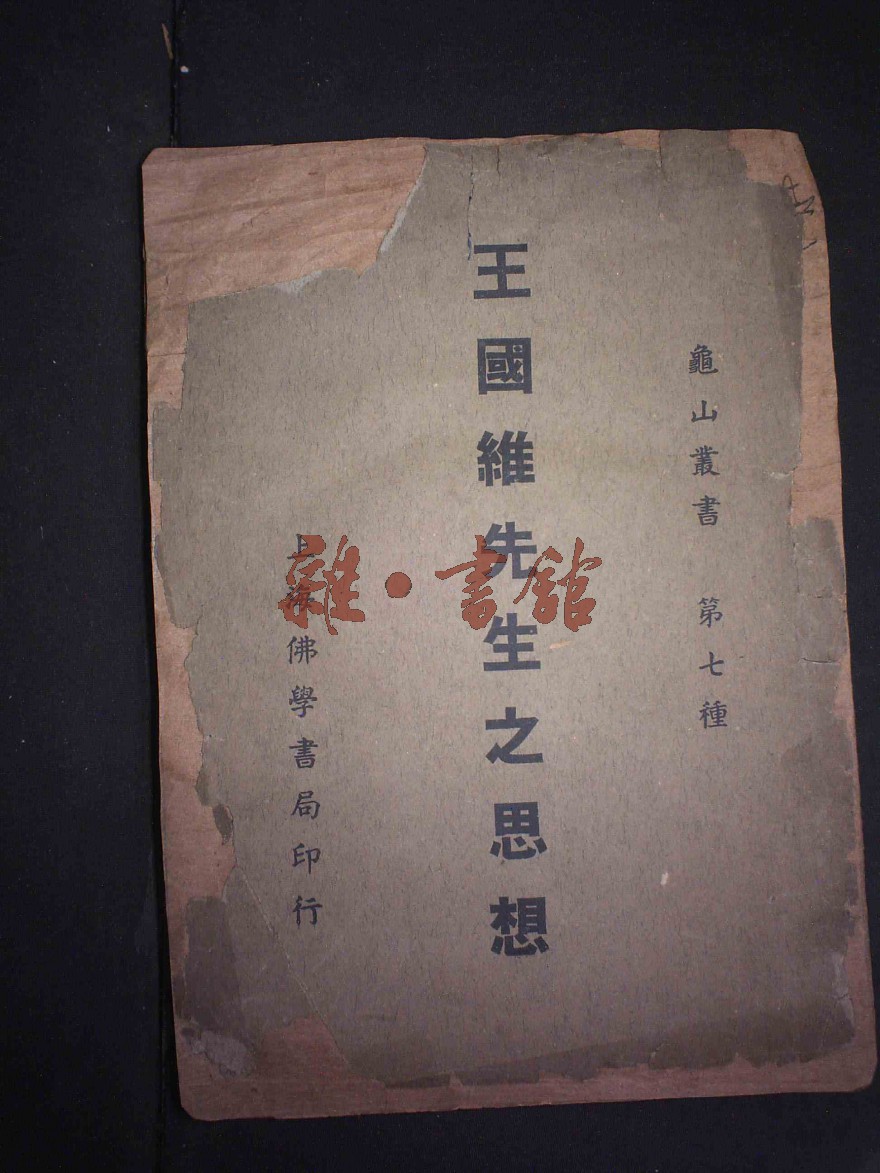 龜山叢書 第七種
王國維先生之思想
上海佛學書局印行
雜·書館